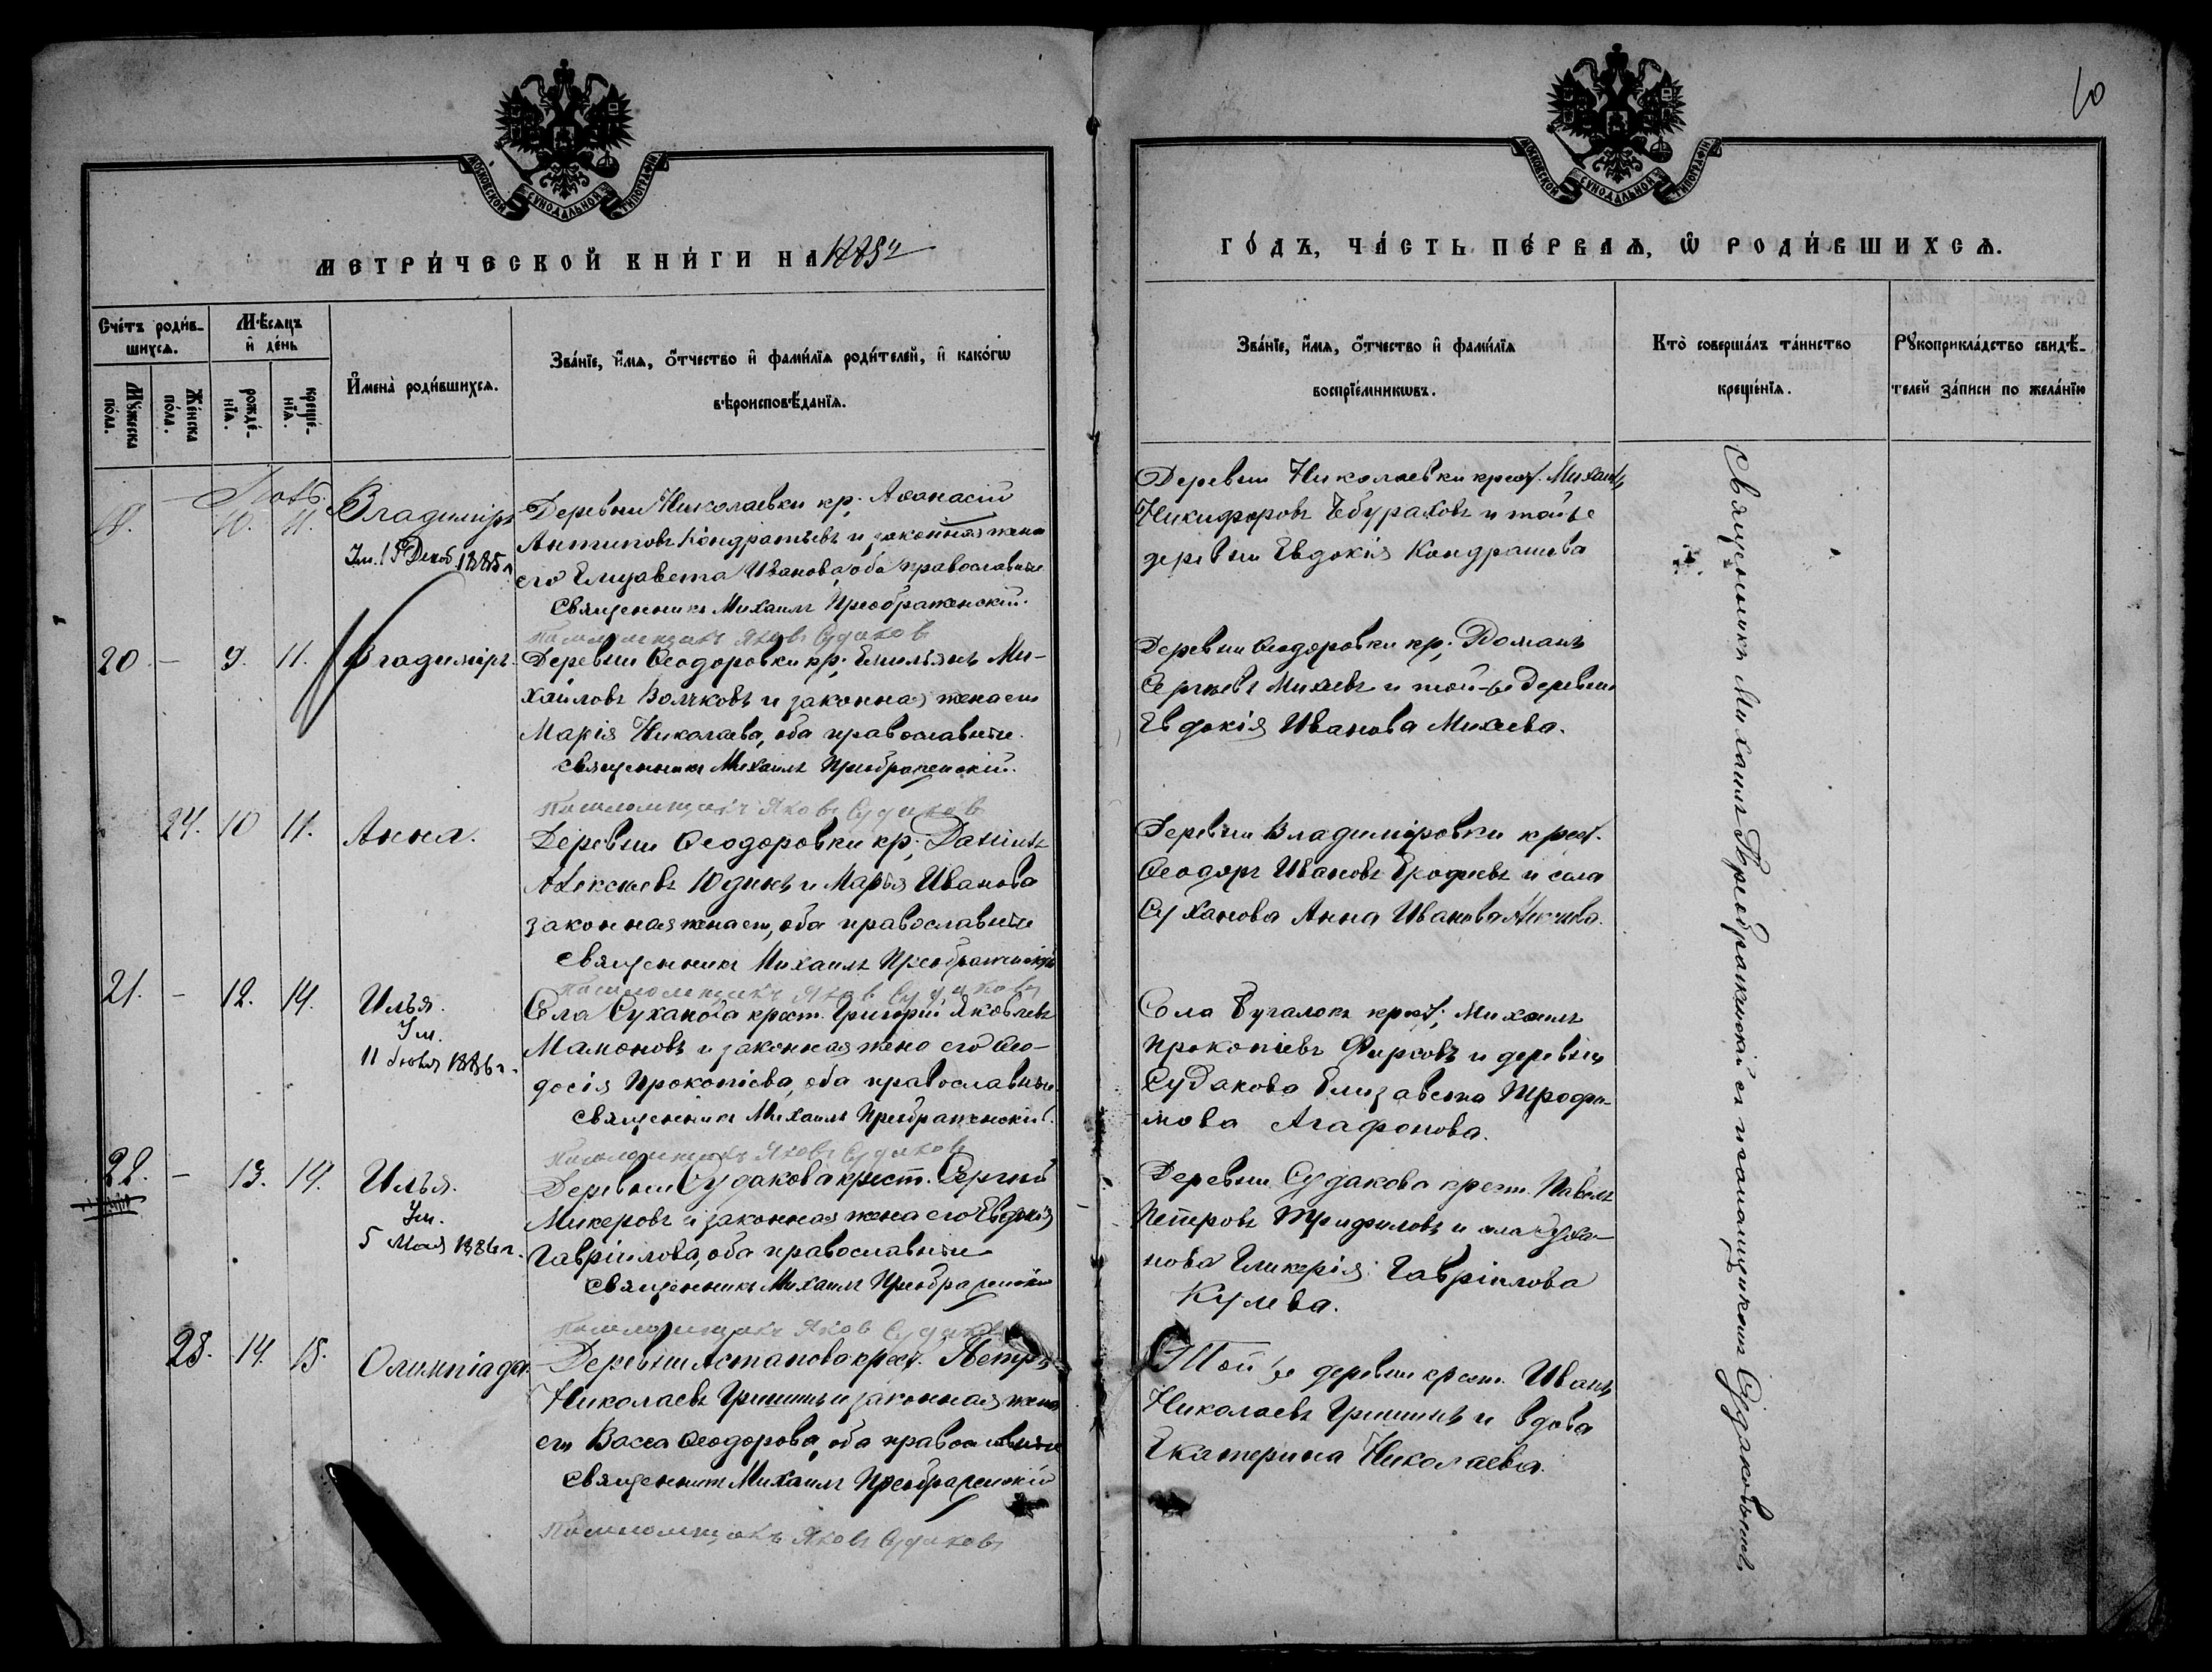 10
МОСКОВСКОЙ СѴНОДАЛЬНОЙ ТИПОГРАФІИ
МОСКОВСКОЙ СѴНОДАЛЬНОЙ ТИПОГРАФІИ
МЕТРИ́ЧЕСКОЙ КНИ́ГИ НА 1885й
ГО́ДЪ, ЧА́СТЬ ПЕ́РВАѦ, Ѡ҆ РОДИ́ВШИХСѦ.
Сче́тъ роди́в-
шихсѧ.
Мѣ́сѧцъ
и҆ де́нь
Мꙋ́жеска
по́ла.
Же́нска
по́ла.
рожде́-
нїѧ.
креще́-
нїѧ.
И҆мена̀ роди́вшихсѧ.
Зва́нїе, и҆́мѧ, ѻ҆́тчество и҆ фами́лїѧ роди́телей, и҆ како́гѡ
вѣроисповѣ́данїѧ.
Зва́нїе, и҆́мѧ, ѻ҆́тчество и҆ фами́лїѧ
воспрїе́мникѡвъ.
Кто̀ соверша́лъ та́инство
креще́нїѧ.
Рꙋкоприкла́дство свидѣ́-
телей за́писи по жела́нїю
10. 11.
Владиміръ
Деревни Николаевки кр. Аѳанасій
Антиповъ Кондратьевъ и законная жена
его Елизавета Иванова, оба православные
Священникъ Михаилъ Преображенскій.
Псаломщикъ Яковъ Судаковъ
Деревни Николаевки крест. Михаилъ
Никифоровъ Чебураховъ и той-же
деревни Евдокія Кондрашова
20. — 9. 11.
Владиміръ.
Деревни Ѳеодоровки кр. Емильянъ Ми-
хайловъ Волчковъ и законная жена его
Марія Николаева, оба православные.
Священникъ Михаилъ Преображенскій.
Псаломщикъ Яковъ Судаковъ
Деревни Ѳеодоровки кр. Романъ
Сергѣевъ Михѣевъ и той-же деревни
Евдокія Иванова Михѣева.
24. 10 11.
Анна.
Деревни Ѳеодоровки кр. Даніилъ
Алексѣевъ Юдинъ и Марья Иванова
законная жена его, оба православные
Священникъ Михаилъ Преображенскій
Псаломщикъ Яковъ Судаковъ
Деревни Владиміровки крест.
Ѳеодоръ Ивановъ и села
Суханова Анна Иванова
21. — 12. 14.
Илья.
Ум.
11 Іюля 1886 г.
Села Суханова крест. Григорій Яковлевъ
Мамоновъ и законная жена его Ѳео-
досія Прокопіева, оба православные.
Священникъ Михаилъ Преображенскій.
Псаломщикъ Яковъ Судаковъ
Села крест. Михаилъ
Прокопіевъ Фирсовъ и деревни
Судакова Елизавета Трофи-
мова Агафонова.
22. — 13. 14.
Илья.
Ум.
5 Мая 1886 г.
Деревни Судакова крест. Сергѣй
Микеровъ и законная жена его Евдокія
Гавріилова, оба православные
Священникъ Михаилъ Преображенскій
Псаломщикъ Яковъ Судаковъ
Деревни Судакова крест. Павелъ
Петровъ Трифиловъ и села Суха-
нова Гликерія Гавріилова
Кулева.
14. 15.
Олимпіада.
Деревни Астапова крест. Петръ
Николаевъ Гришинъ и законная жена
его Васса Ѳеодорова, оба православные
Священникъ Михаилъ Преображенскій
Псаломщикъ Яковъ Судаковъ
Той же деревни крест. Иванъ
Николаевъ Гришинъ и вдова
Екатерина Николаева.
Священникъ Михаилъ Преображенскій съ псаломщикомъ Судаковымъ